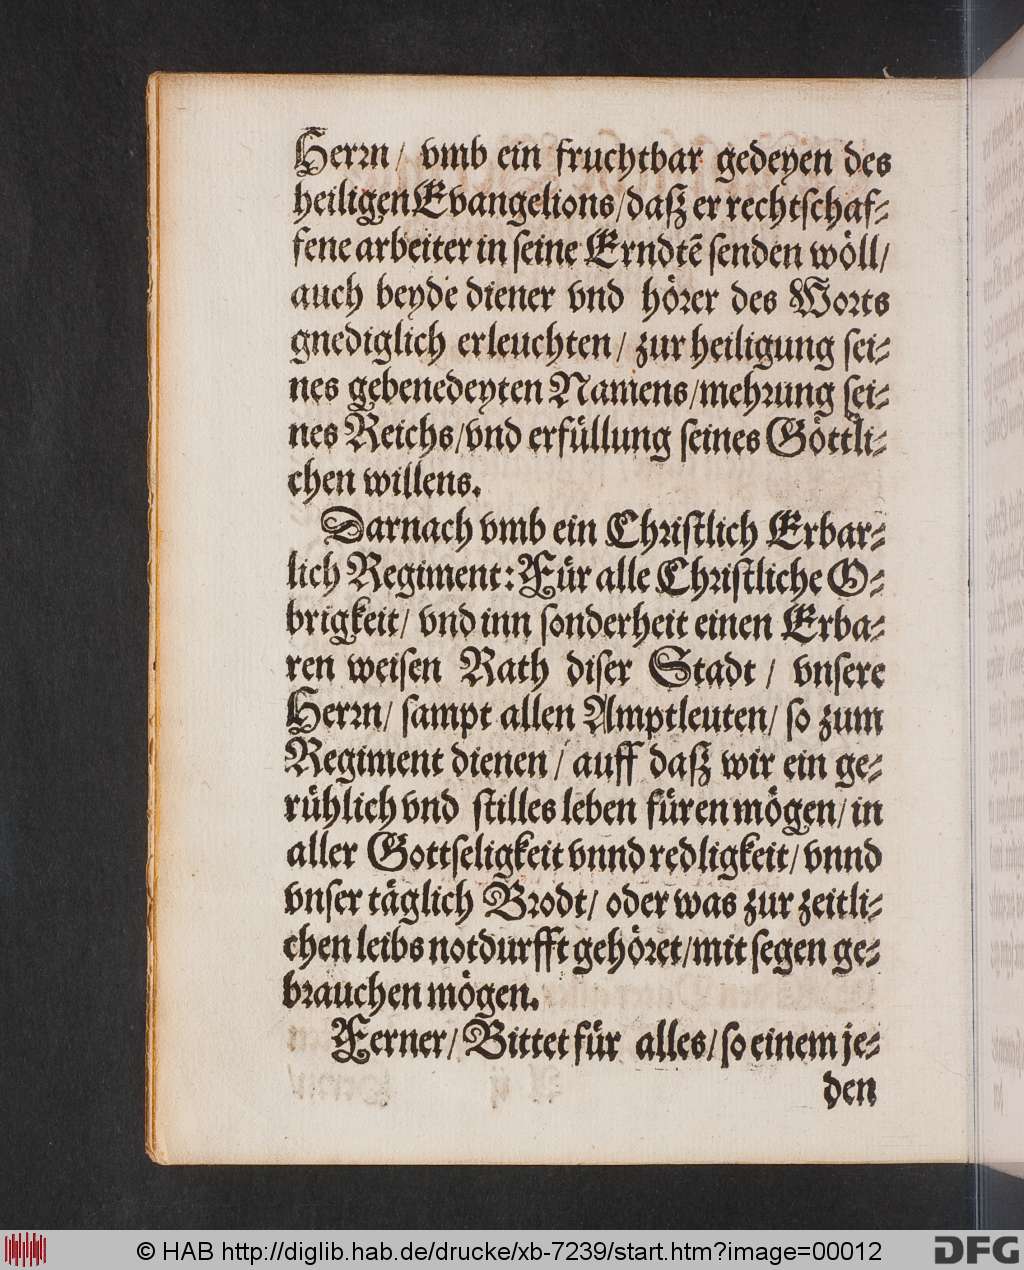 Herrn / vmb ein fruchtbar gedeyen des
heiligen Evangelions / daß er rechtschaf-
fene arbeiter in seine Erndtẽ senden wöll /
auch beyde diener vnd hörer des Worts
gnediglich erleuchten / zur heiligung sei-
nes gebenedeyten Namens / mehrung sei-
nes Reichs / vnd erfüllung seines Göttli-
chen willens.
Darnach vmb ein Christlich Erbar-
lich Regiment: Für alle Christliche O-
brigkeit / vnd inn sonderheit einen Erba-
ren weisen Rath diser Stadt / vnsere
Herrn / sampt allen Amptleuten / so zum
Regiment dienen / auff daß wir ein ge-
rühlich vnd stilles leben füren mögen / in
aller Gottseligkeit vnnd redligkeit / vnnd
vnser täglich Brodt / oder was zur zeitli-
chen leibs notdurfft gehöret / mit segen ge-
brauchen mögen.
Ferner / Bittet für alles / so einem je-
den
© HAB http://diglib.hab.de/drucke/xb-7239/start.htm?image=00012
DFG